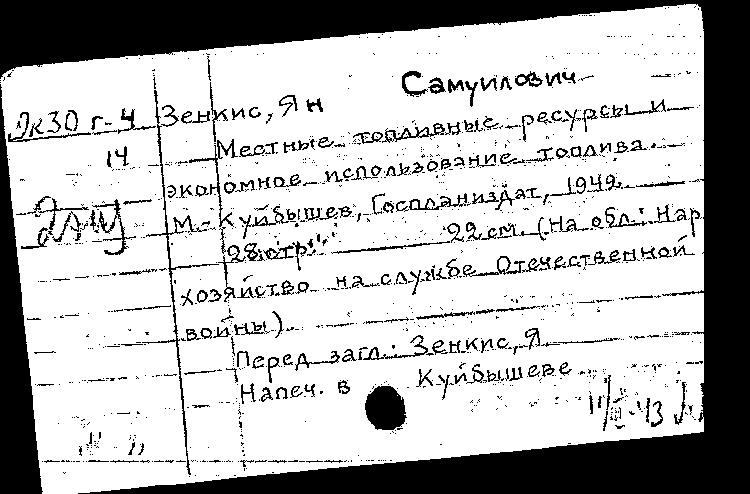 Самуилович
Эк30 г-4 Зенкис, Ян
14 Местные топливные ресурсы и
экономное использование топлива.
М.-Куйбышев, Госпланиздат, 1942.
28 стр. 22 см. (На обл.: Нар
хозяйство на службе Отечественной
войны).
Перед загл.: Зенкис, Я.
Напеч. в Куйбышеве